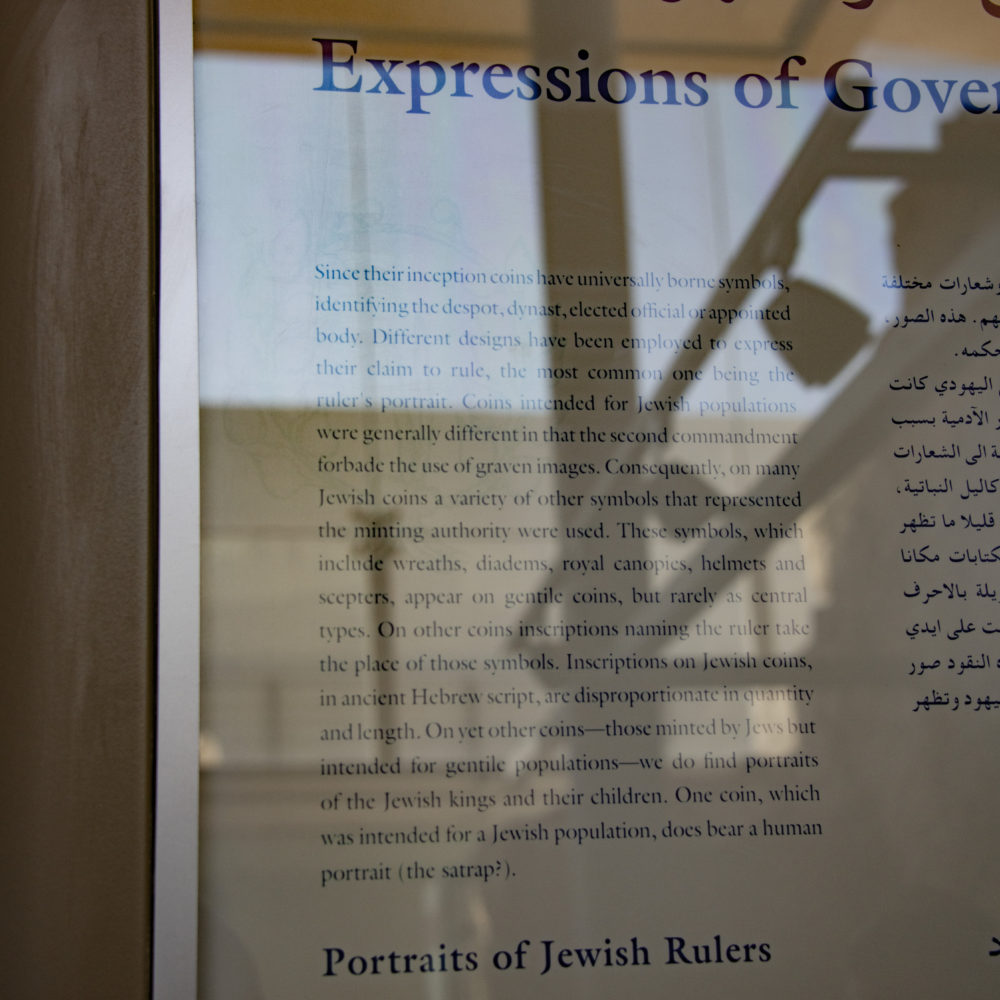 Expressions of Gover
Since their inception coins have universally borne symbols,
identifying the despot, dynast, elected official or appointed
body. Different designs have been employed to express
their claim to rule, the most common one being the
ruler's portrait. Coins intended for Jewish populations
were generally different in that the second commandment
forbade the use of graven images. Consequently, on many
Jewish coins a variety of other symbols that represented
the minting authority were used. These symbols, which
include wreaths, diadems, royal canopies, helmets and
scepters, appear on gentile coins, but rarely as central
types. On other coins inscriptions naming the ruler take
the place of those symbols. Inscriptions on Jewish coins,
in ancient Hebrew script, are disproportionate in quantity
and length. On yet other coins—those minted by Jews but
intended for gentile populations—we do find portraits
of the Jewish kings and their children. One coin, which
was intended for a Jewish population, does bear a human
portrait (the satrap?).
Portraits of Jewish Rulers
وشعارات مختلفة
هم. هذه الصور،
حكمه.
اليهودي كانت
الآدمية بسبب
ة الى الشعارات
كاليل النباتية،
قليلا ما تظهر
كتابات مكانا
يلة بالاحرف
ت على ايدي
النقود صور
يهود وتظهر